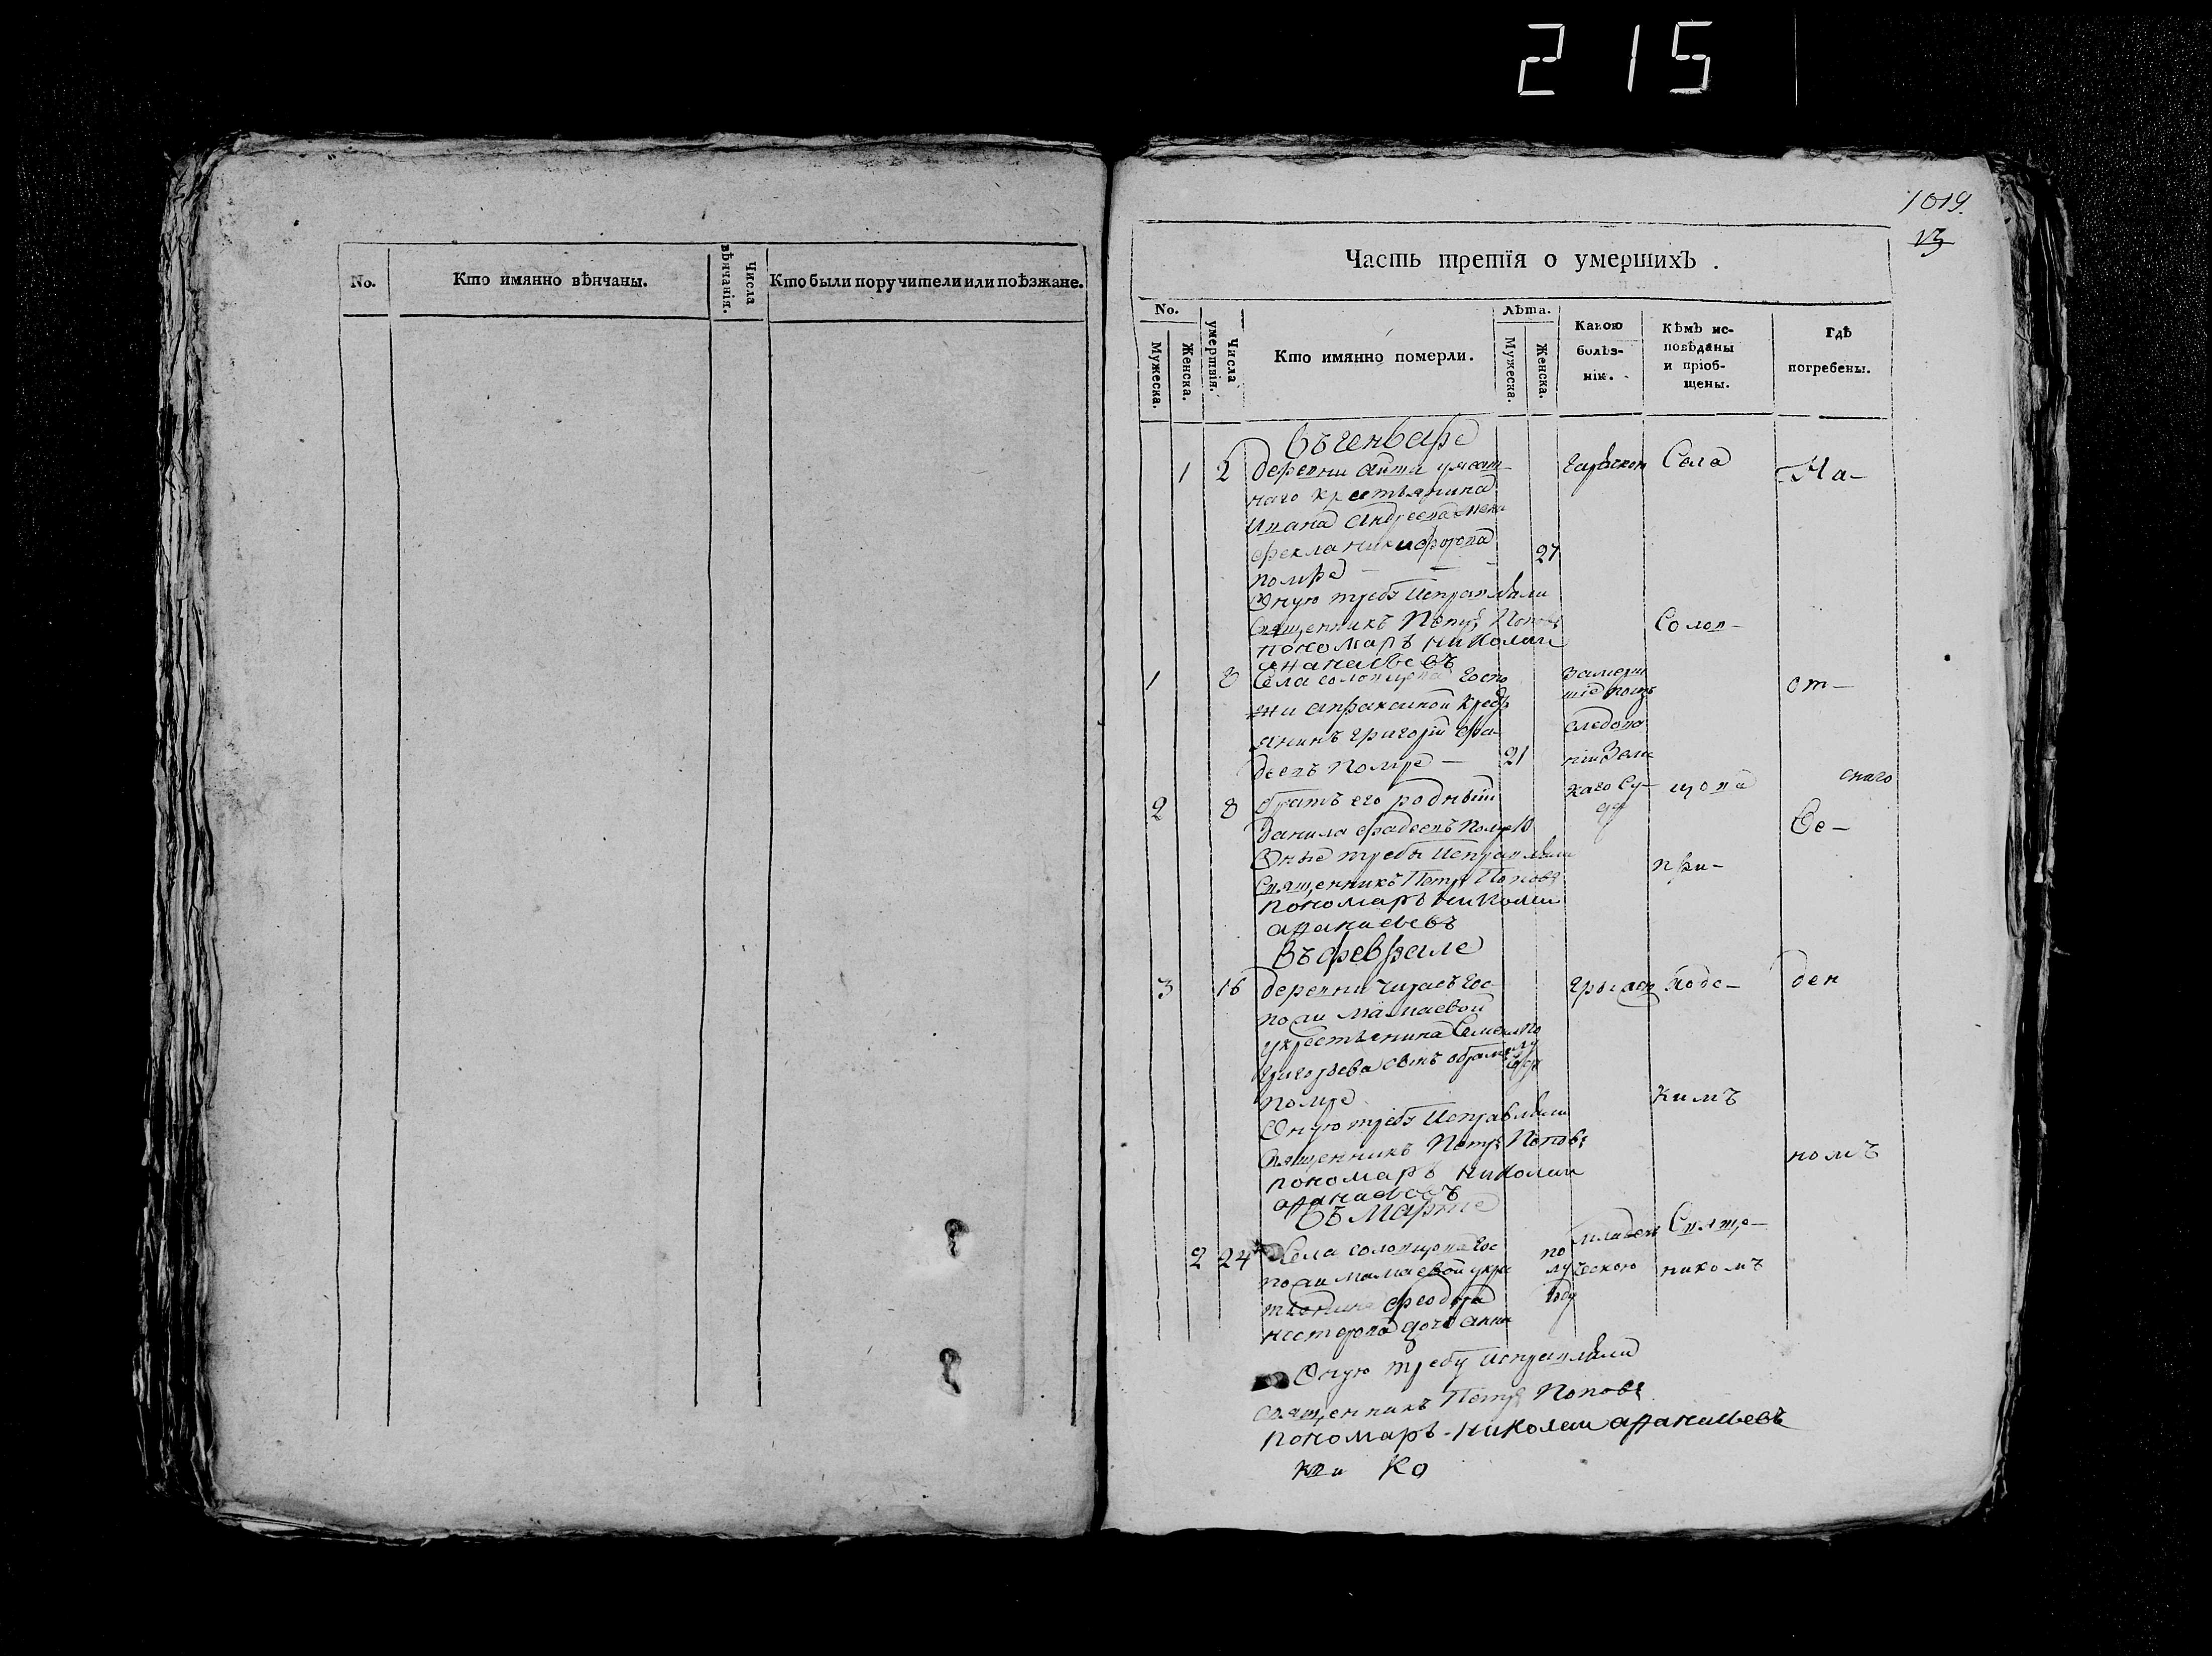 215
No.
Кто имянно вѣнчаны.
Числа вѣнчанія.
Кто были поручители или поѣзжане.
1019.
13
Часть третія о умершихъ.
No.
Мужеска.
Женска.
Числа умертвія.
Кто имянно померли.
Лѣта.
Мужеска.
Женска.
Какою болѣз-
нію.
Кѣмъ ис-
повѣданы
и пріоб-
щены.
Гдѣ
погребены.
въ генваре
1 2 деревни
наго крестьянина
Ивана Андреева жена
фекла никифорова 27
помре
Оную требу Исправляли
Священникъ Петръ Поповъ
пономарь николаи
Ананьевъ
горячкою
Села
На-
Солов-
1 8 Села соловцова госпо
жи апраксиной крестья
янинъ григорій фа-
деевъ помре 21
замерли
по из
следова
нию Земс
каго Су-
да
от-
2 8 братъ его родный
данила фадеевъ помре
Оные требы Исправляли
Священникъ Петръ Поповъ
пономарь николаи
ананьевъ
цова
снаго
Ве-
при-
въ феврале
3 16 деревни гос
пожи мамаевой
у крестьянина Семена
григорьева сынъ
помре
Оную требу Исправляли
Священникъ Петръ Поповъ
пономарь николаи
ананьевъ
ходс-
ден
кимъ
номъ
въ марте
2 24 Села соловцова гос
пожи мамаевой у крес
тьянина феодора
нестерова дочь анна
по
лу
году
младен
ческою
Свяще-
никомъ
Оную требу исправляли
священникъ Петръ Поповъ
пономарь николаи ананьевъ